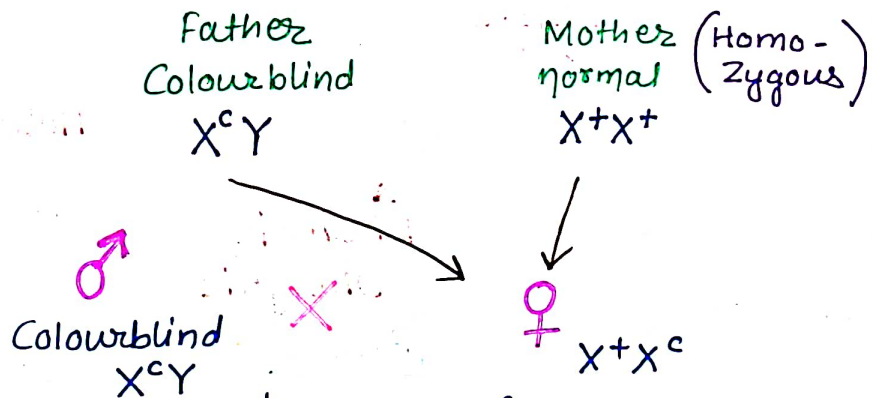 Father
Colourblind
XᶜY
Mother (Homo-
normal Zygous)
X⁺X⁺
Colourblind
XᶜY
X⁺Xᶜ